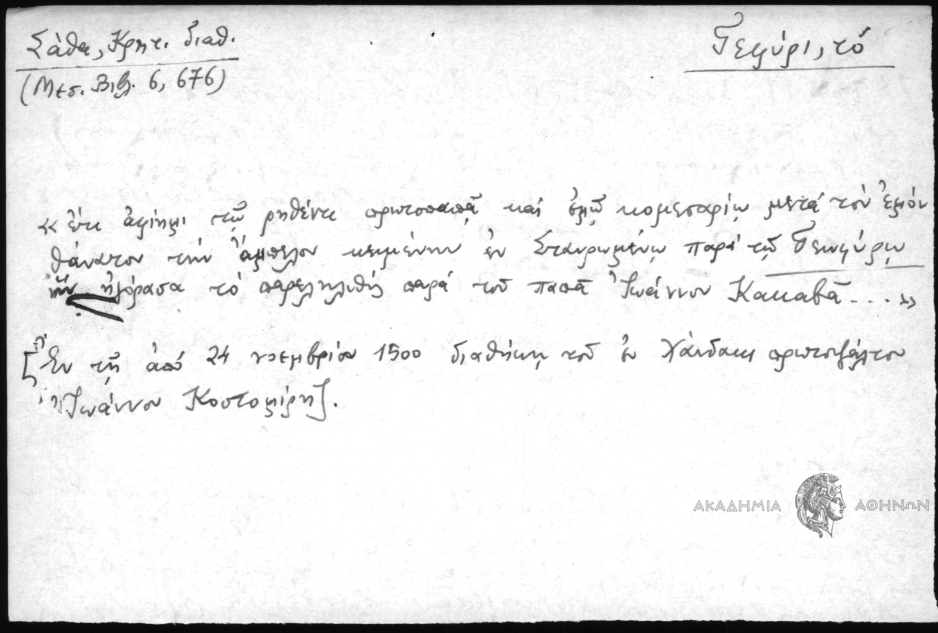 Σάθα, Κρητ. διαθ.
(Μεσ. Βιβ. 6, 676)
Γεφύρι, τό
« ἔτι ἀφίημι τῷ ρηθέντι πρωτοπαπᾷ καί ἐμῷ κομεσαρίῳ μετά τόν ἐμόν
θάνατον τήν ἄμπελον κειμένην ἐν Σταυρωμένῳ παρά τῷ Γεωφύρῳ
ἥν ἠγόρασα τό παρεληλυθός παρά τοῦ παπᾶ Ἰωάννου Κακαβᾶ .... »
[Ἐν τῇ ἀπό 24 νοεμβρίου 1500 διαθήκῃ τοῦ ἐν Χάνδακι πρωτοψάλτου
Ἰωάννου].
ΑΚΑΔΗΜΙΑ ΑΘΗΝΩΝ